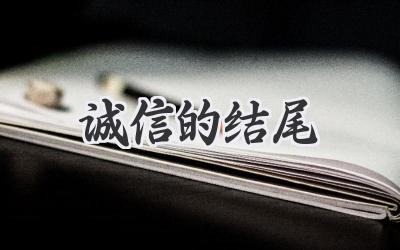 诚信的结尾